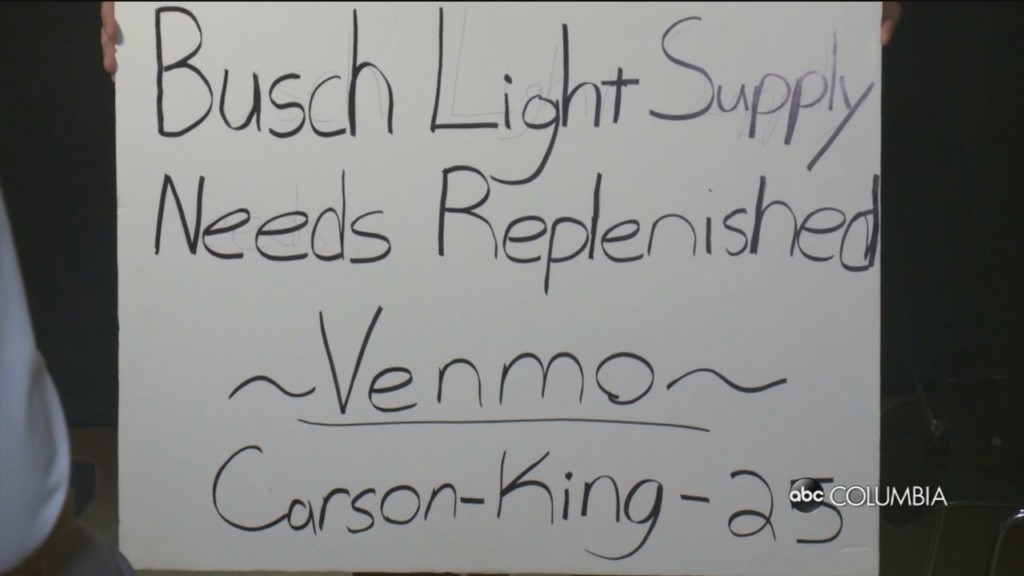 Busch Light Supply
Needs Replenished
~Venmo~
Carson-King-25
abc COLUMBIA